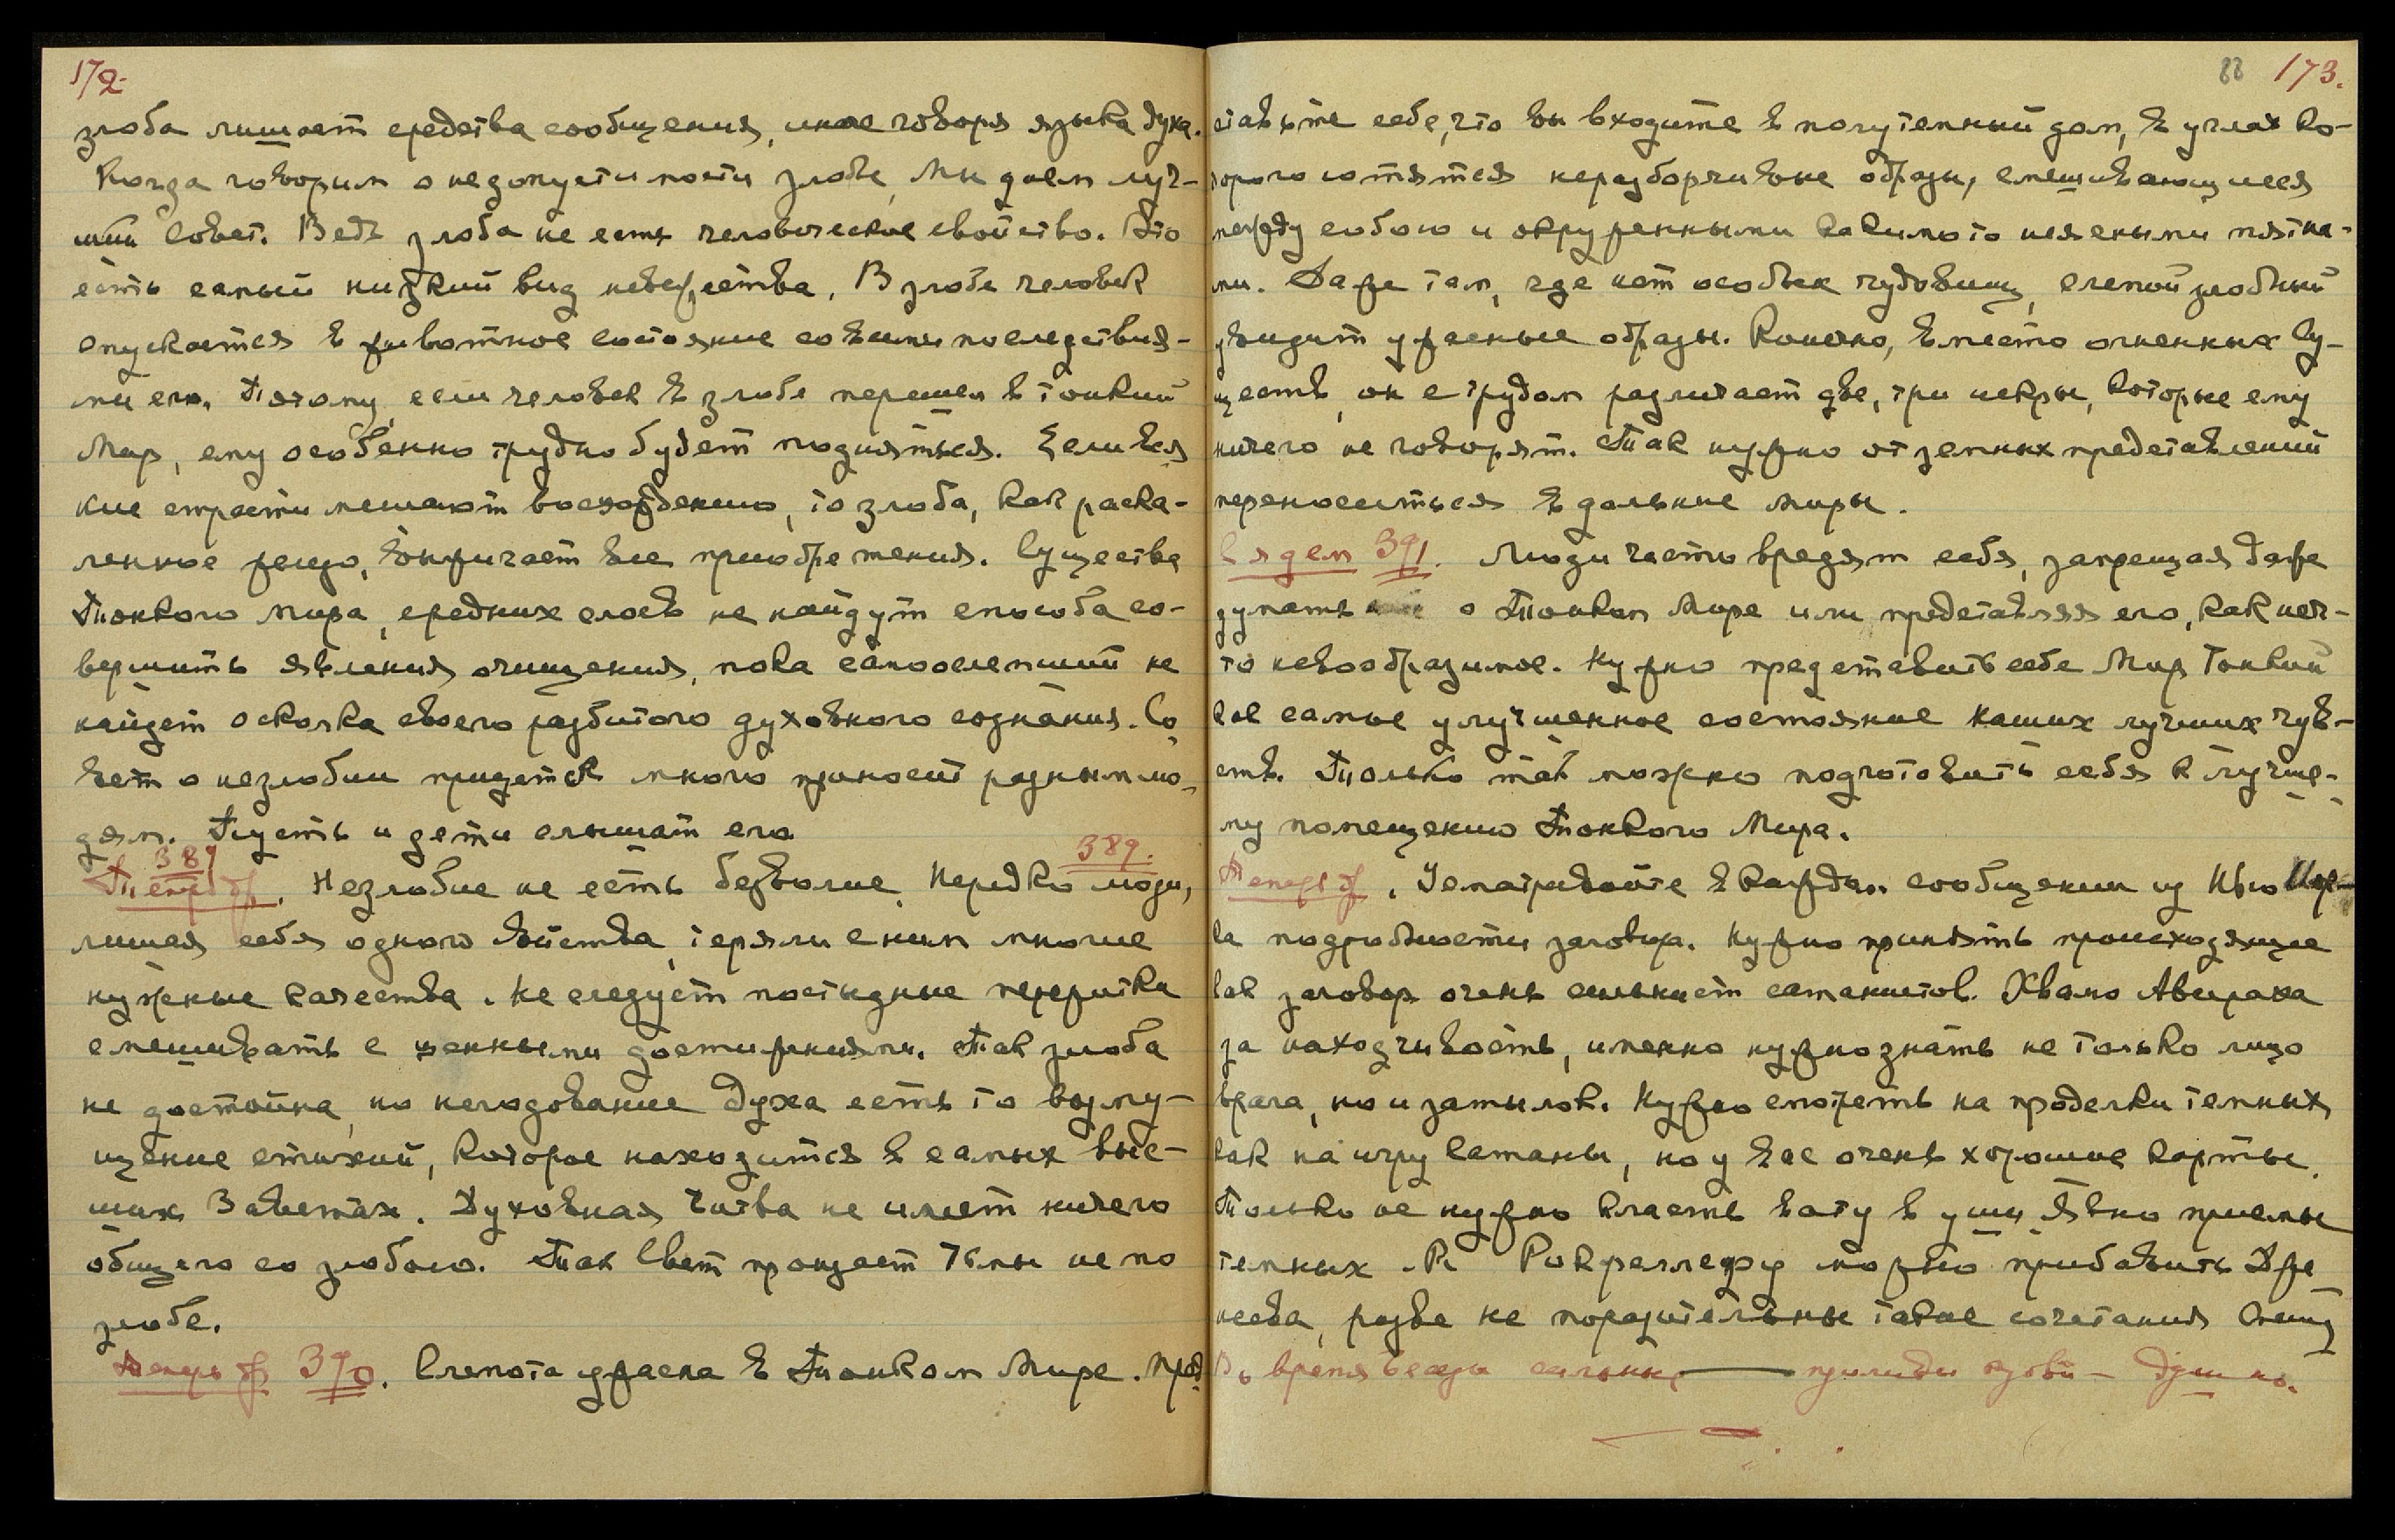 172.
злоба лишает средства сообщения, иначе говоря языка духа.
Когда говорим о недопустимости злобы, Мы даем луч-
ший Совет. Ведь злоба не есть человеческое свойство. Это
есть самый низкий вид невежества. В злобе человек
спускается в животное состояние со всеми последствия-
ми его. Потому, если человек в злобе перешел в тонкий
Мир, ему особенно трудно будет подняться. Если вся
кие страсти мешают восхождению, то злоба, как раска-
ленное железо, выжигает все приобретения. Существа
Тонкого Мира, средних слоев не найдут способа со-
вершить явления очищения, пока самоослепший не
найдет осколка своего разбитого духовного сознания. Со
вет о незлобии придется много приносить разным лю-
дям. Пусть и дети слышат его
389 389.
Теперь др. Незлобие не есть безволие. Нередко люди,
лишая себя одного свойства, теряли с ним многие
нужные качества. Не следует постыдные пережитки
смешивать с ценными достижениями. Так злоба
не достойна, но негодование Духа есть то возму-
щение стихий, которое находится в самых выс-
ших Заветах. Духовная битва не имеет ничего
общего со злобою. Так Свет пронзает Тьмы не по
злобе.
Теперь др. 390. Слепота ужасна в Тонком Мире. Пред
88 173.
ставьте себе, что вы входите в полутемный дом, в углах ко-
торого ютятся неразборчивые образы, смешивающиеся
между собою и окруженными какими то неясными пятна-
ми. Даже там, где нет особых чудовищ, слепой злобный
увидит ужасные образы. Конечно, вместо огненных Су-
ществ, он с трудом различает две, три искры, которые ему
ничего не говорят. Так нужно от земных представлений
переноситься в дальние миры.
391. Люди часто вредят себя, запрещая даже
думать о Тонком Мире или представляя его, как неч-
то невообразимое. Нужно представить себе Мир Тонкий
как самые улучшенное состояние наших лучших чув-
ств. Только так можно подготовить себя к лучше-
му помещению Тонкого Мира.
Теперь др. Усматривайте в каждом сообщении из Нью Иор-
ка подробности заговора. Нужно принять происходящее
как заговор очень сатанистов. Хвалю Авираха
за находчивость, именно нужно знать не только лицо
врага, но и затылок. Нужно смотреть на проделки темных
как на игру Сатаны, но у вас очень хорошие карты.
Только не нужно класть вату в уши. Явно приемы
темных. К Рокфеллеру можно прибавить Дже
несса, разве не поразительны такие сочетания
Во время Беседы сильные — приливы крови — душно.